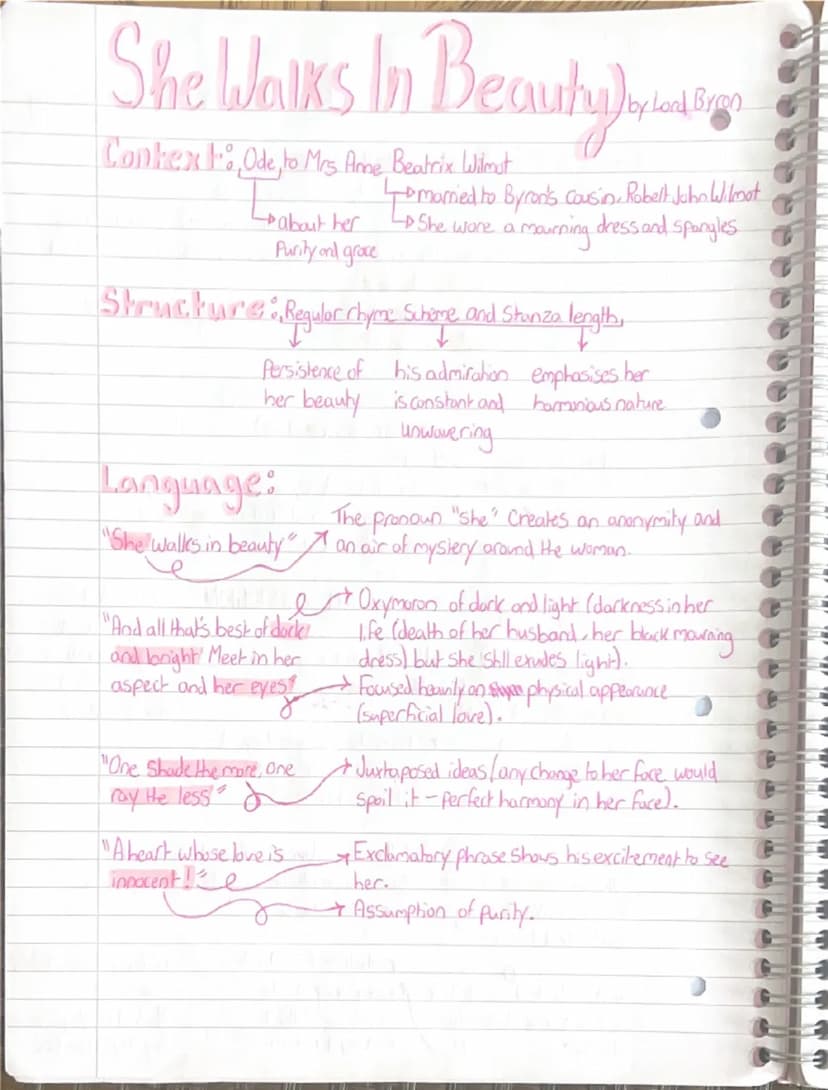 She Walks In Beauty) by Lord Byron
Context: Ode, to Mrs Anne Beatrix Wilmot
married to Byron's cousin, Robert John Wilmot
about her
She wore a mourning dress and spangles
Purity and grace
Structure: Regular rhyme Scheme and Stanza length,
Persistence of his admiration emphasises her
her beauty is constant and harmonious nature
unwavering
Language:
The pronoun "she" Creates an anonymity and
"She walks in beauty" an air of mystery around the woman.
Oxymoron of dark and light (darkness in her
"And all that's best of dark life (death of her husband, her black mourning
and bright Meet in her dress) but she still exudes light).
aspect and her eyes" Focused heavily on physical appearance
(superficial love).
"One Shade the more, one Juxtaposed ideas (any change to her face would
ray the less" spoil it - perfect harmony in her face).
"A heart whose love is Exclamatory phrase shows his excitement to see
innocent!" her.
Assumption of purity.